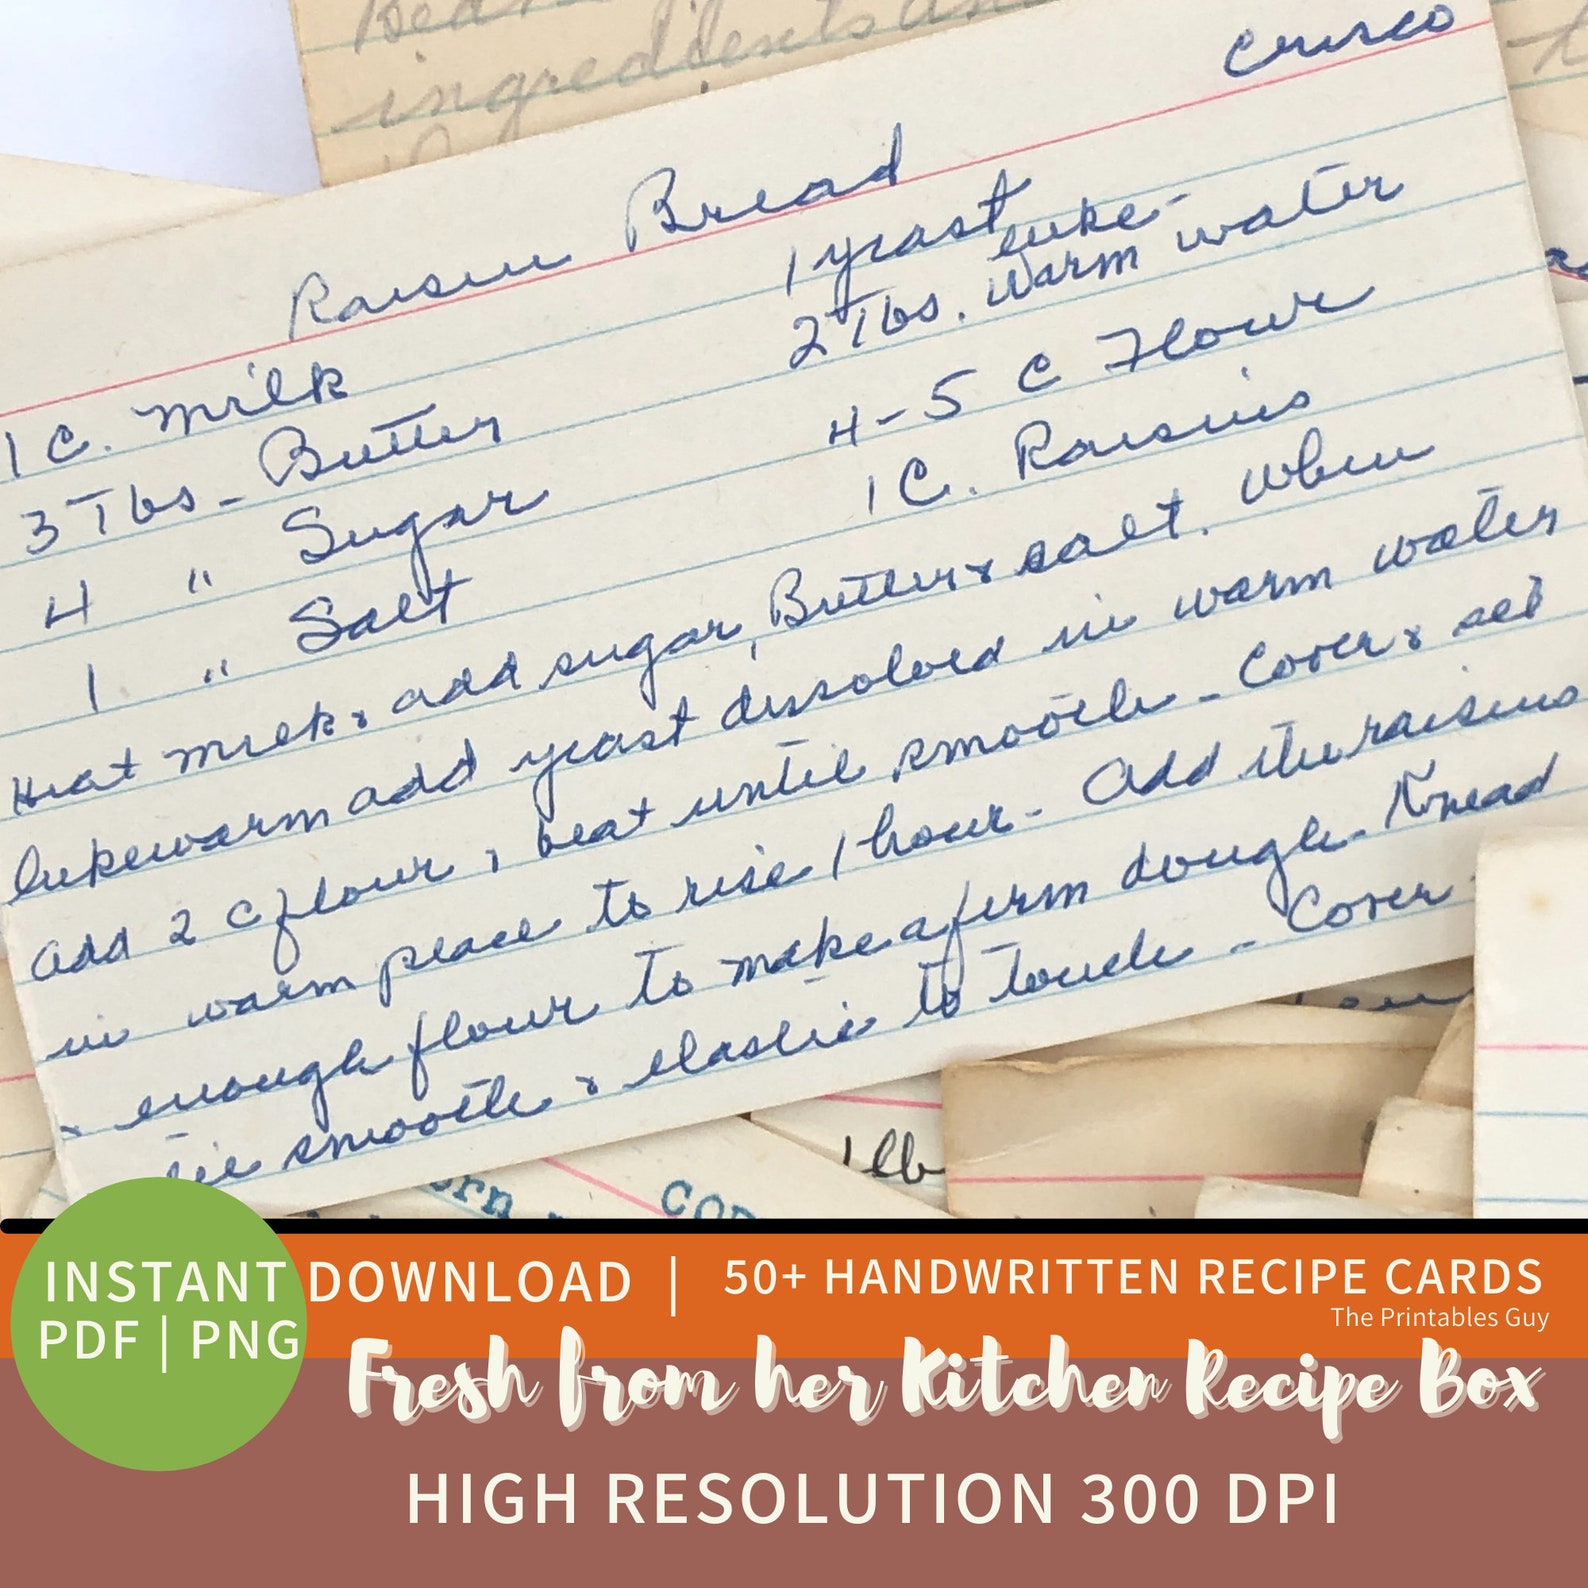 ingredients and
Crisco
Raisin Bread
1 yeast
1 C. Milk
2 Tbs. luke-warm water
3 Tbs - Butter
4-5 C Flour
4 " Sugar
1 C. Raisins
1 " Salt
Heat milk & add sugar, Butter & salt. When
lukewarm add yeast dissolved in warm water
add 2 C flour, beat until smooth - Cover & set
in warm place to rise 1 hour - Add the raisins
& enough flour to make a firm dough - Knead
smooth & elastic to touch - Cover
1 lb
INSTANT DOWNLOAD | 50+ HANDWRITTEN RECIPE CARDS
The Printables Guy
PDF | PNG
Fresh from her Kitchen Recipe Box
HIGH RESOLUTION 300 DPI